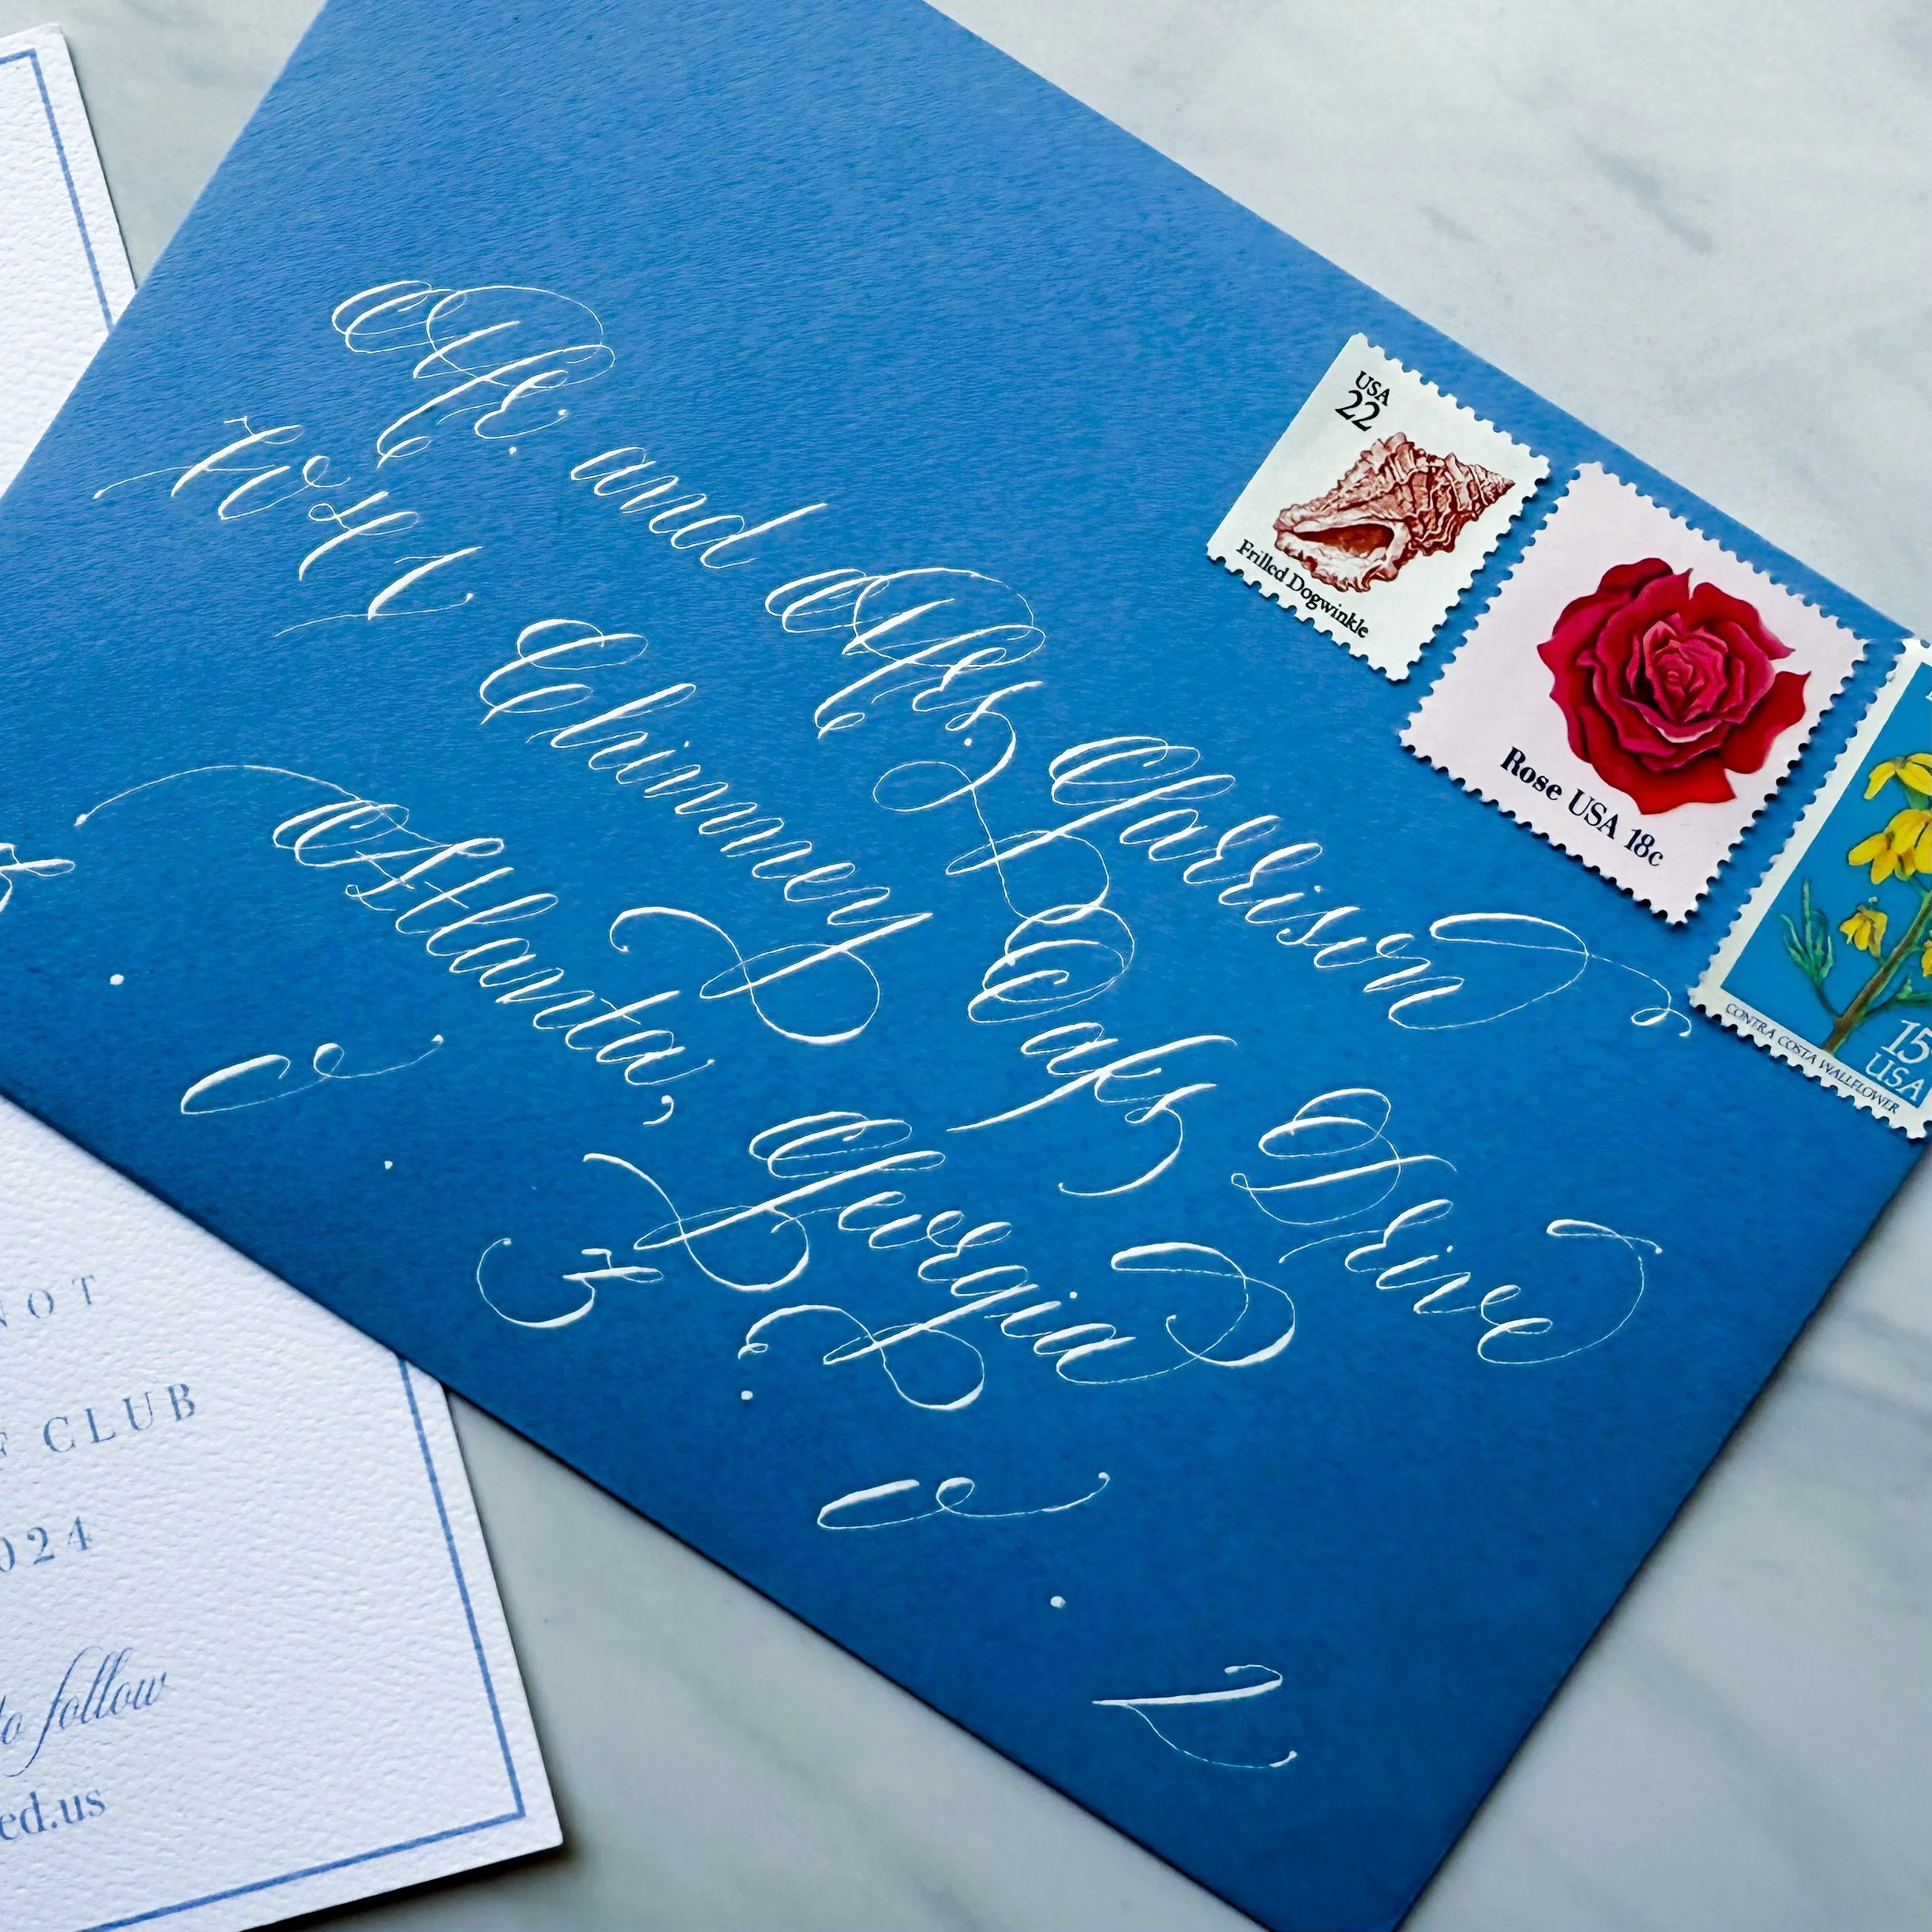 Mr. and Mrs. Garrison
1041 Chimney Oaks Drive
Atlanta, Georgia
3 . 0 . 3 . 0 . 2
USA
22
Frilled Dogwinkle
Rose USA 18c
15
USA
CONTRA COSTA WALLFLOWER
NOT
F CLUB
024
to follow
ed.us